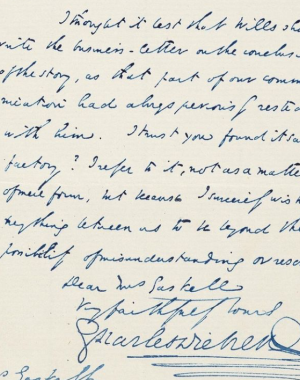 I thought it best that Wills sho
write the business-letter on the conclus
of the story, as that part of our comm
nication had always previously rested
with him. I trust you found it sa
factory? I refer to it, not as a matte
of mere form, but because I sincerely wish
nything between us to be beyond the
possibility of misunderstanding or rese
Dear Mrs Gaskell
Vy faithfully Yours
Charles Dicken
s Gaskell